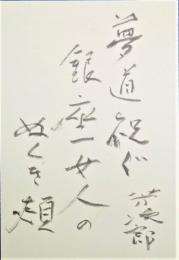 夢道祝ぐ
銀座一女人の
ぬくき頬